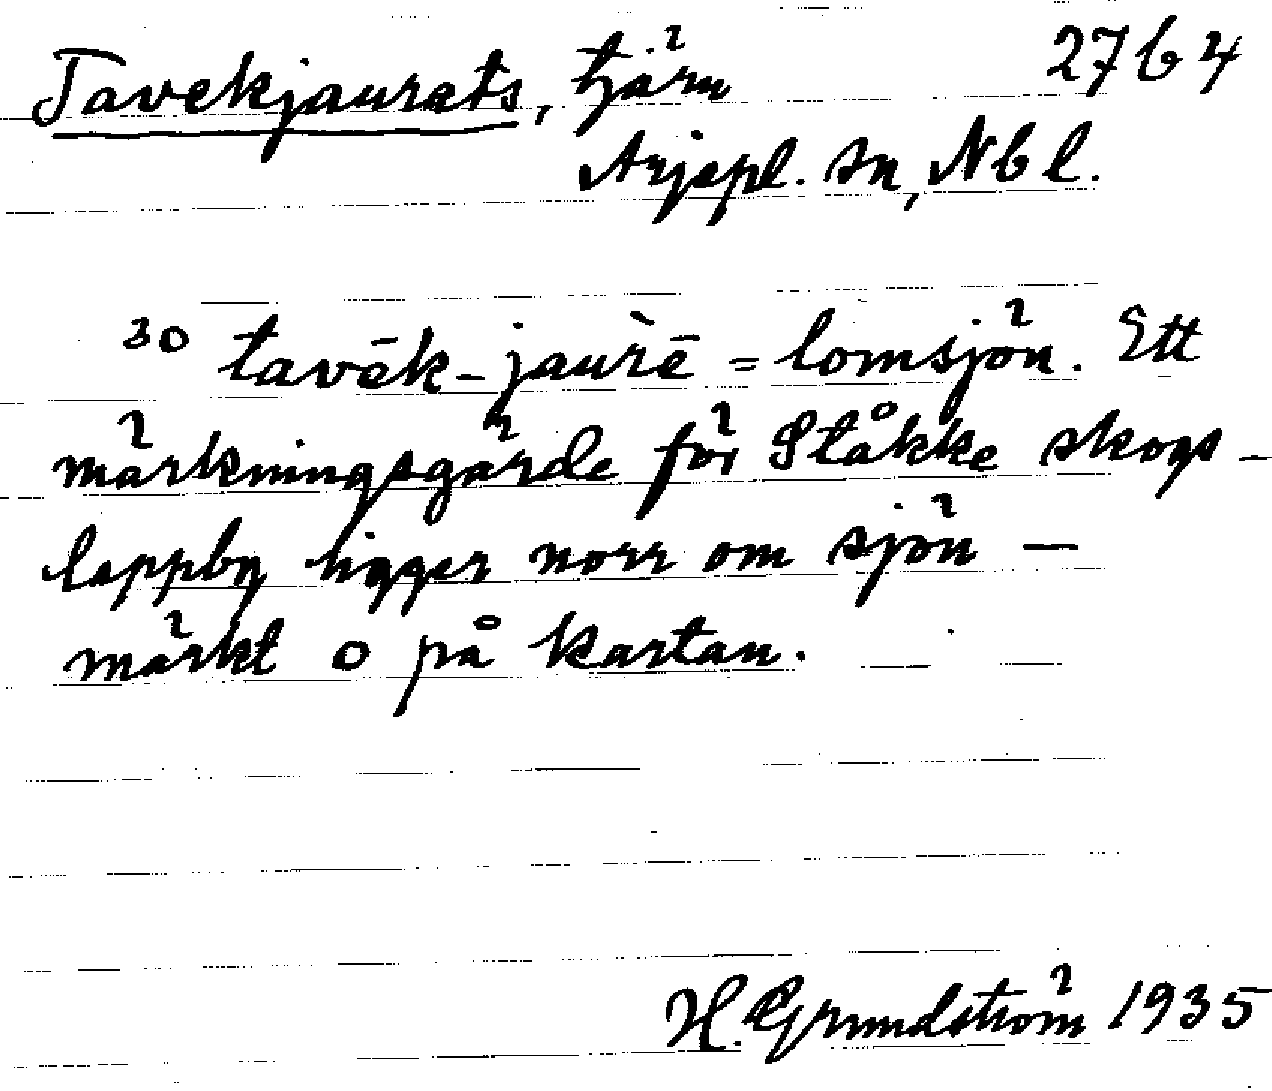 Tavekjaurats, tjärn 27 b 4
Arjepl. sn, Nbl.
30 tavēk-jaurè̄ = lomsjön. Ett
märkningsgärde för Ståkke skogs-
lappby ligger norr om sjön —
märkt o på kartan.
H. Grundström 1935